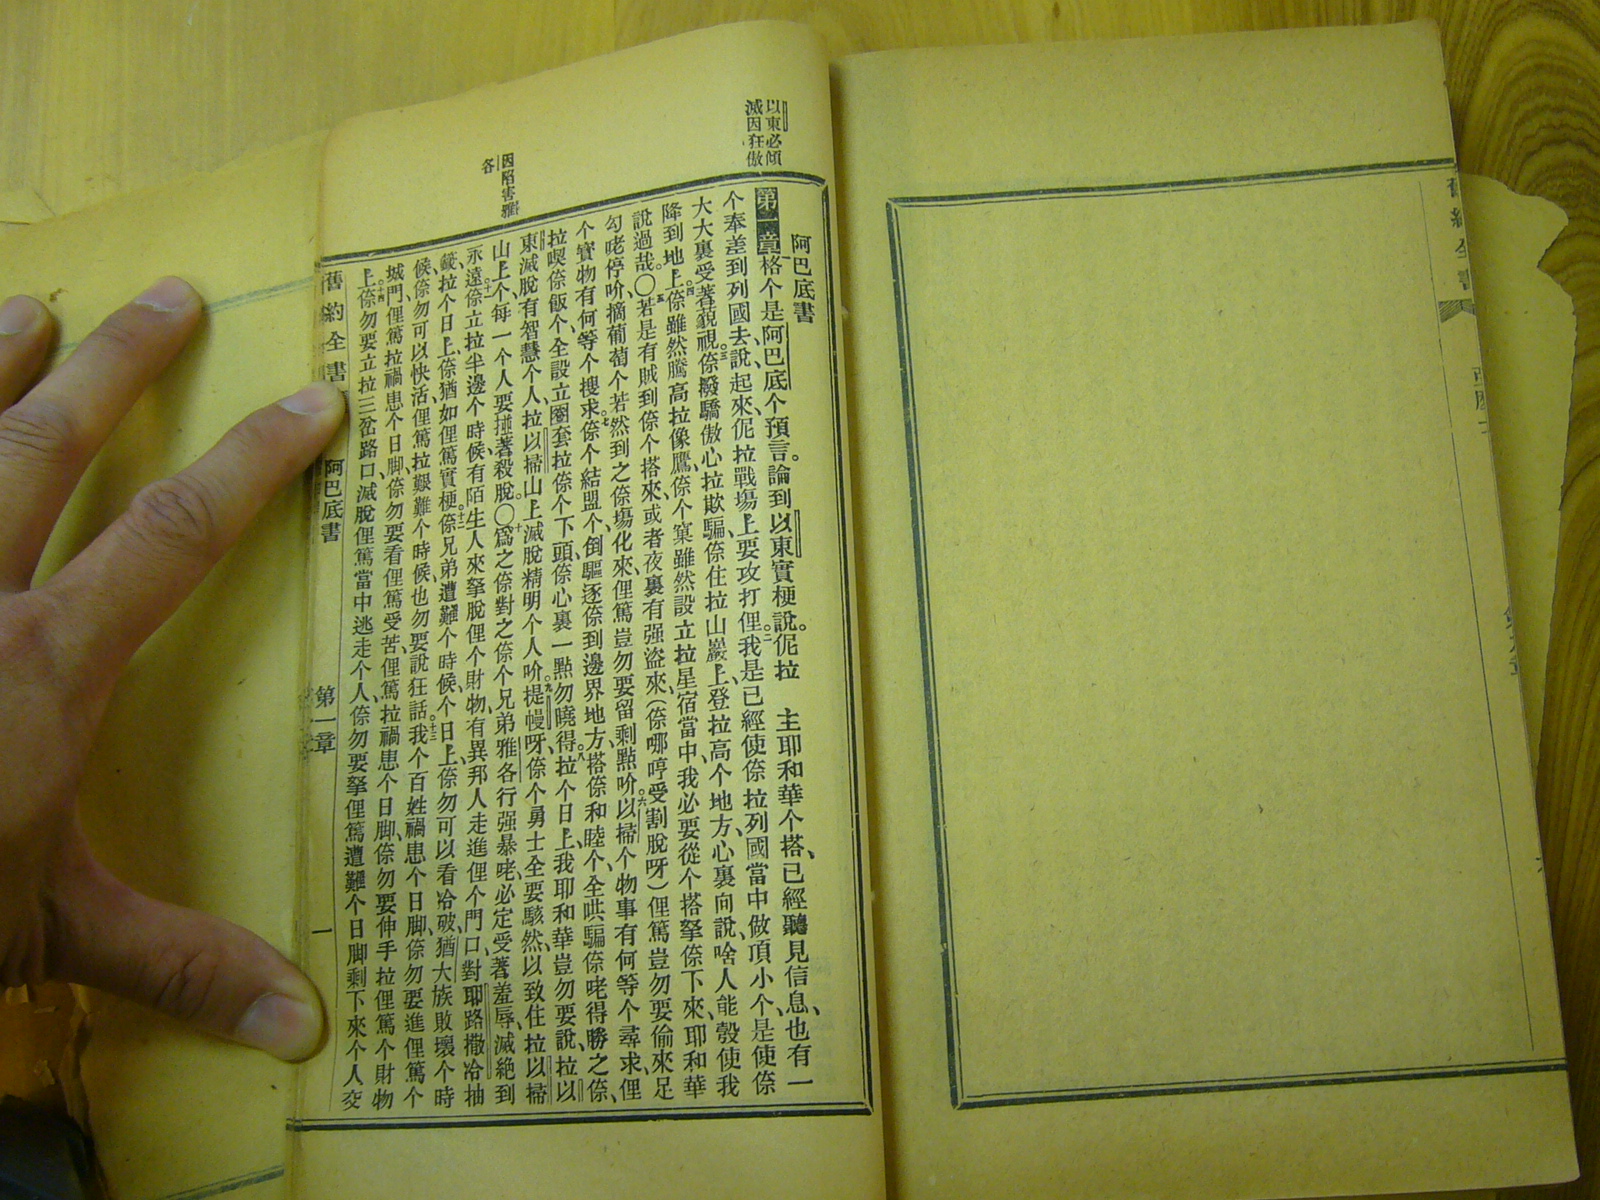 舊約全書 第九章
以東必傾
滅因狂傲
因陷害雅
各
阿巴底書
第一章 格个是阿巴底个預言。論到以東實梗說。伲拉 主耶和華个搭、已經聽見信息、也有一
个奉差到列國去、說、起來、伲拉戰塲上要攻打俚。二我是已經使倷拉列國當中做頂小个、是使倷
大大裏受著藐視。三倷撥驕傲心拉欺騙、倷住拉山巖上、登拉高个地方、心裏向說、啥人能彀使我
降到地上。四倷雖然騰高拉像鷹、倷个窠雖然設立拉星宿當中、我必要從个搭拏倷下來、耶和華
說過哉。〇五若是有賊到倷个搭來、或者夜裏有强盜來、(倷哪哼受割脫呀)俚篤豈勿要偷來足
勾咾停吤、摘葡萄个若然到之倷塲化來、俚篤豈勿要留剩點吤。六以掃个物事有何等个尋求、俚
个寶物有何等个搜求。七倷个結盟个、倒驅逐倷到邊界地方、搭倷和睦个、全哄騙倷咾得勝之倷、
拉喫倷飯个、全設立圈套拉倷个下頭、倷心裏一點勿曉得。八拉个日上、我耶和華豈勿要說、拉以
東滅脫有智慧个人、拉以掃山上滅脫精明个人吤。九提幔呀、倷个勇士全要駭然、以致住拉以掃
山上个、每一个人要撞著殺脫。〇十爲之倷對之倷个兄弟雅各行强暴咾、必定受著羞辱、滅絕到
永遠。十一倷立拉半邊个時候、有陌生人來拏脫俚个財物、有異邦人走進俚个門口、對耶路撒冷抽
籤、拉个日上、倷猶如俚篤實梗。十二倷兄弟遭難个時候、个日上、倷勿可以看冷破、猶大族敗壞个時
候、倷勿可以快活、俚篤拉艱難个時候、也勿要說狂話。十三我个百姓禍患个日脚、倷勿要進俚篤个
城門、俚篤拉禍患个日脚、倷勿要看俚篤受苦、俚篤拉禍患个日脚、倷勿要伸手拉俚篤个財物
上。十四倷勿要立拉三岔路口、滅脫俚篤當中逃走个人、倷勿要拏俚篤遭難个日脚剩下來个人交
舊約全書 阿巴底書 第一章 一